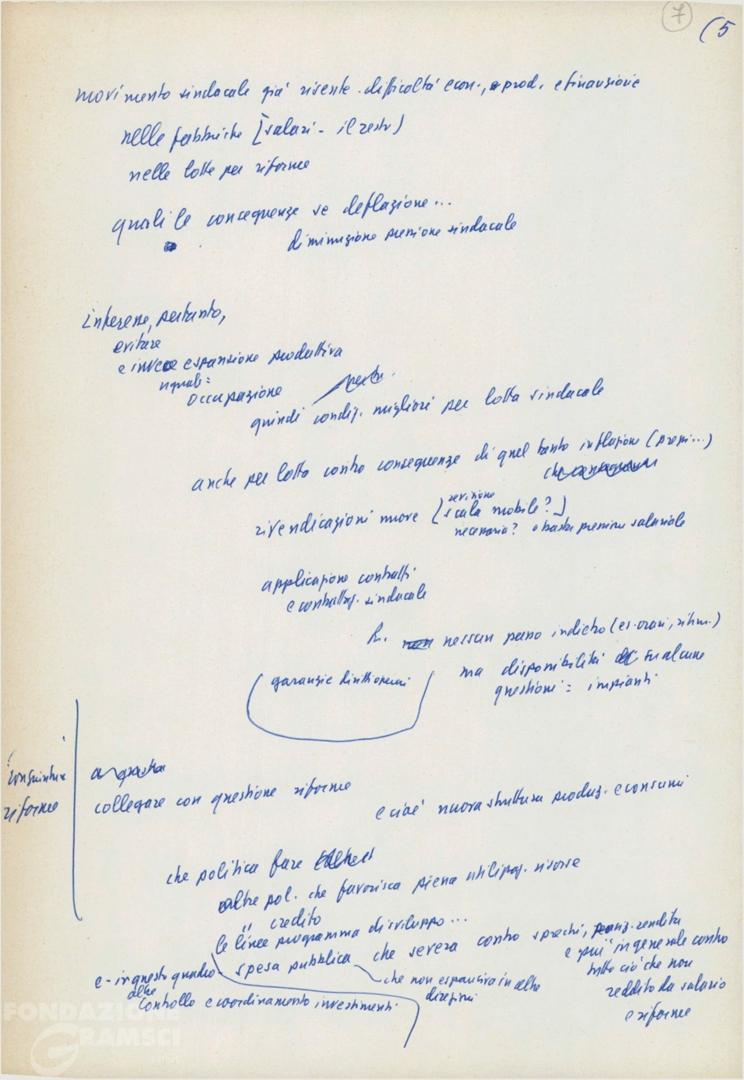 7
(5
movimento sindacale già risente difficoltà econ., prod. e finanziarie
nelle fabbriche [salari - il resto)
nelle lotte per riforme
quali le conseguenze se deflazione...
diminuzione pressione sindacale
interesse, pertanto,
evitare
e invece espansione produttiva
occupazione
quindi condiz. migliori per lotta sindacale
anche per lotta contro conseguenze di quel tanto inflazione (prezzi...)
rivendicazioni nuove [revisione scala mobile?]
necessaria? o basta pressione salariale
applicazione contratti
e contrattaz. sindacale
nessun passo indietro (es. orari, ritmi.)
ma disponibilità su alcune
questioni = impianti
garanzie
congiuntura
riforme
collegare con questione riforme
e cioè nuova struttura produz. e consumi
che politica fare
altre pol. che favorisca piena utilizzaz. risorse
" credito
le linee programma di sviluppo...
e - in questo quadro - spesa pubblica che severa contro sprechi, rendita
e più in generale contro
tutto ciò che non
reddito da salario
e riforme
che non espansiva in altre
direzioni
controllo e coordinamento investimenti
FONDAZIONE
GRAMSCI